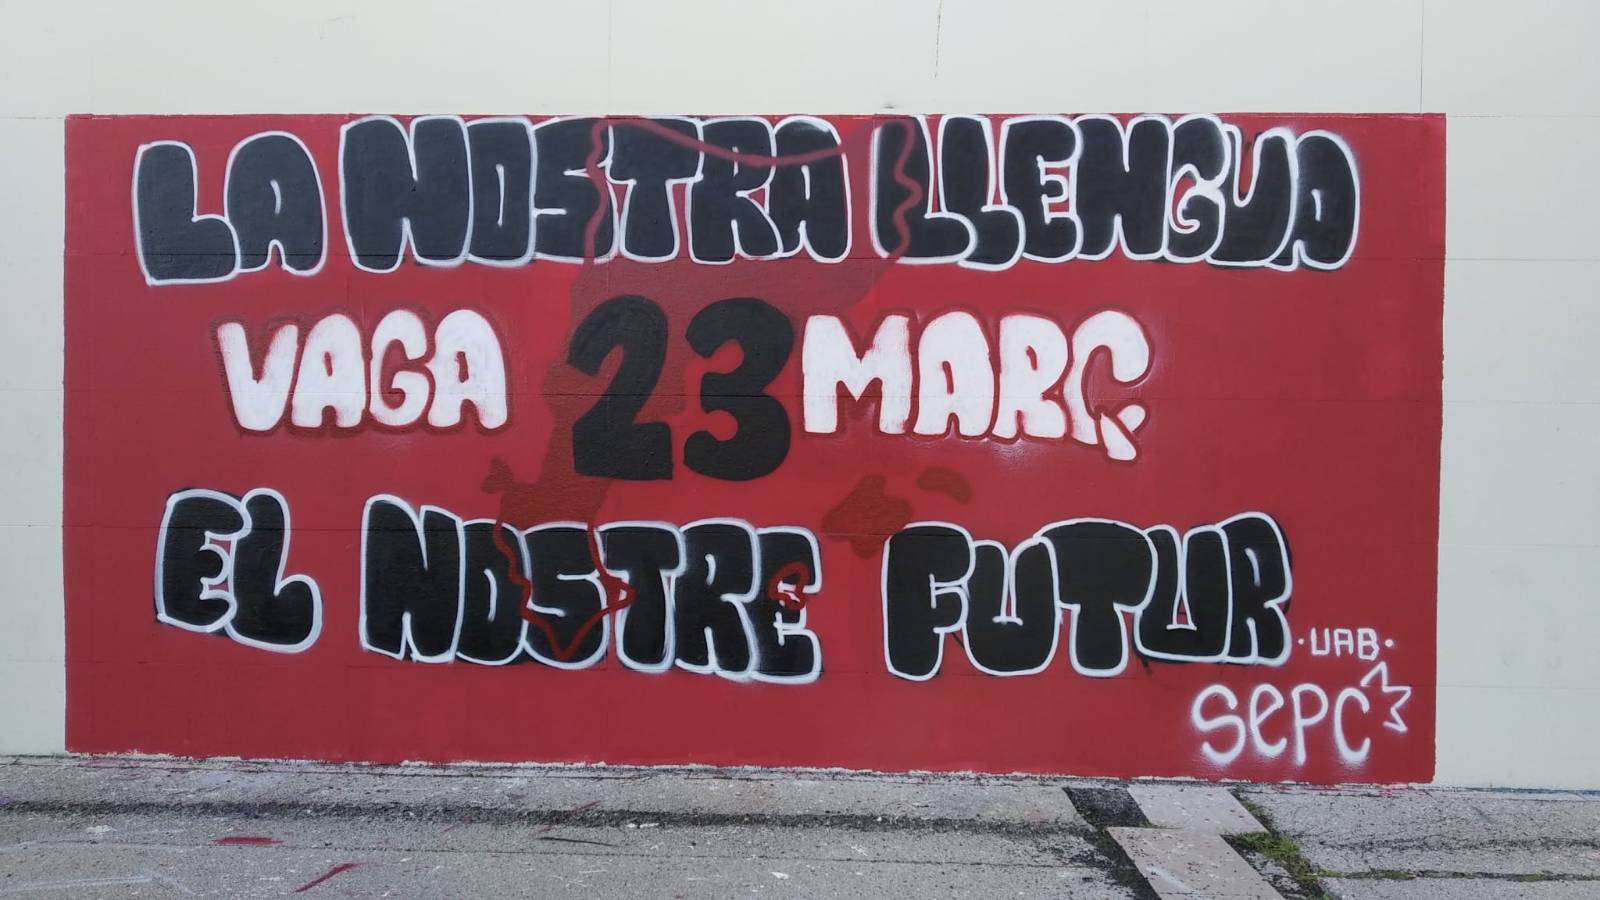 LA NOSTRA LLENGUA
VAGA 23 MARÇ
EL NOSTRE FUTUR
·UAB·
SEPC